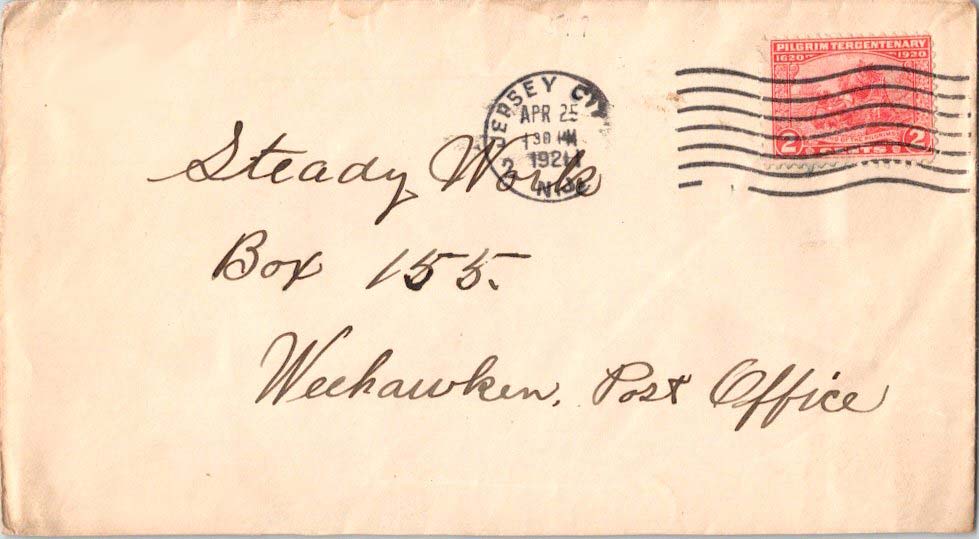 PILGRIM TERCENTENARY
1620 1920
2 CENTS 2
JERSEY CITY
APR 25
1921
N.J.
Steady Work
Box 155.
Weehawken, Post Office